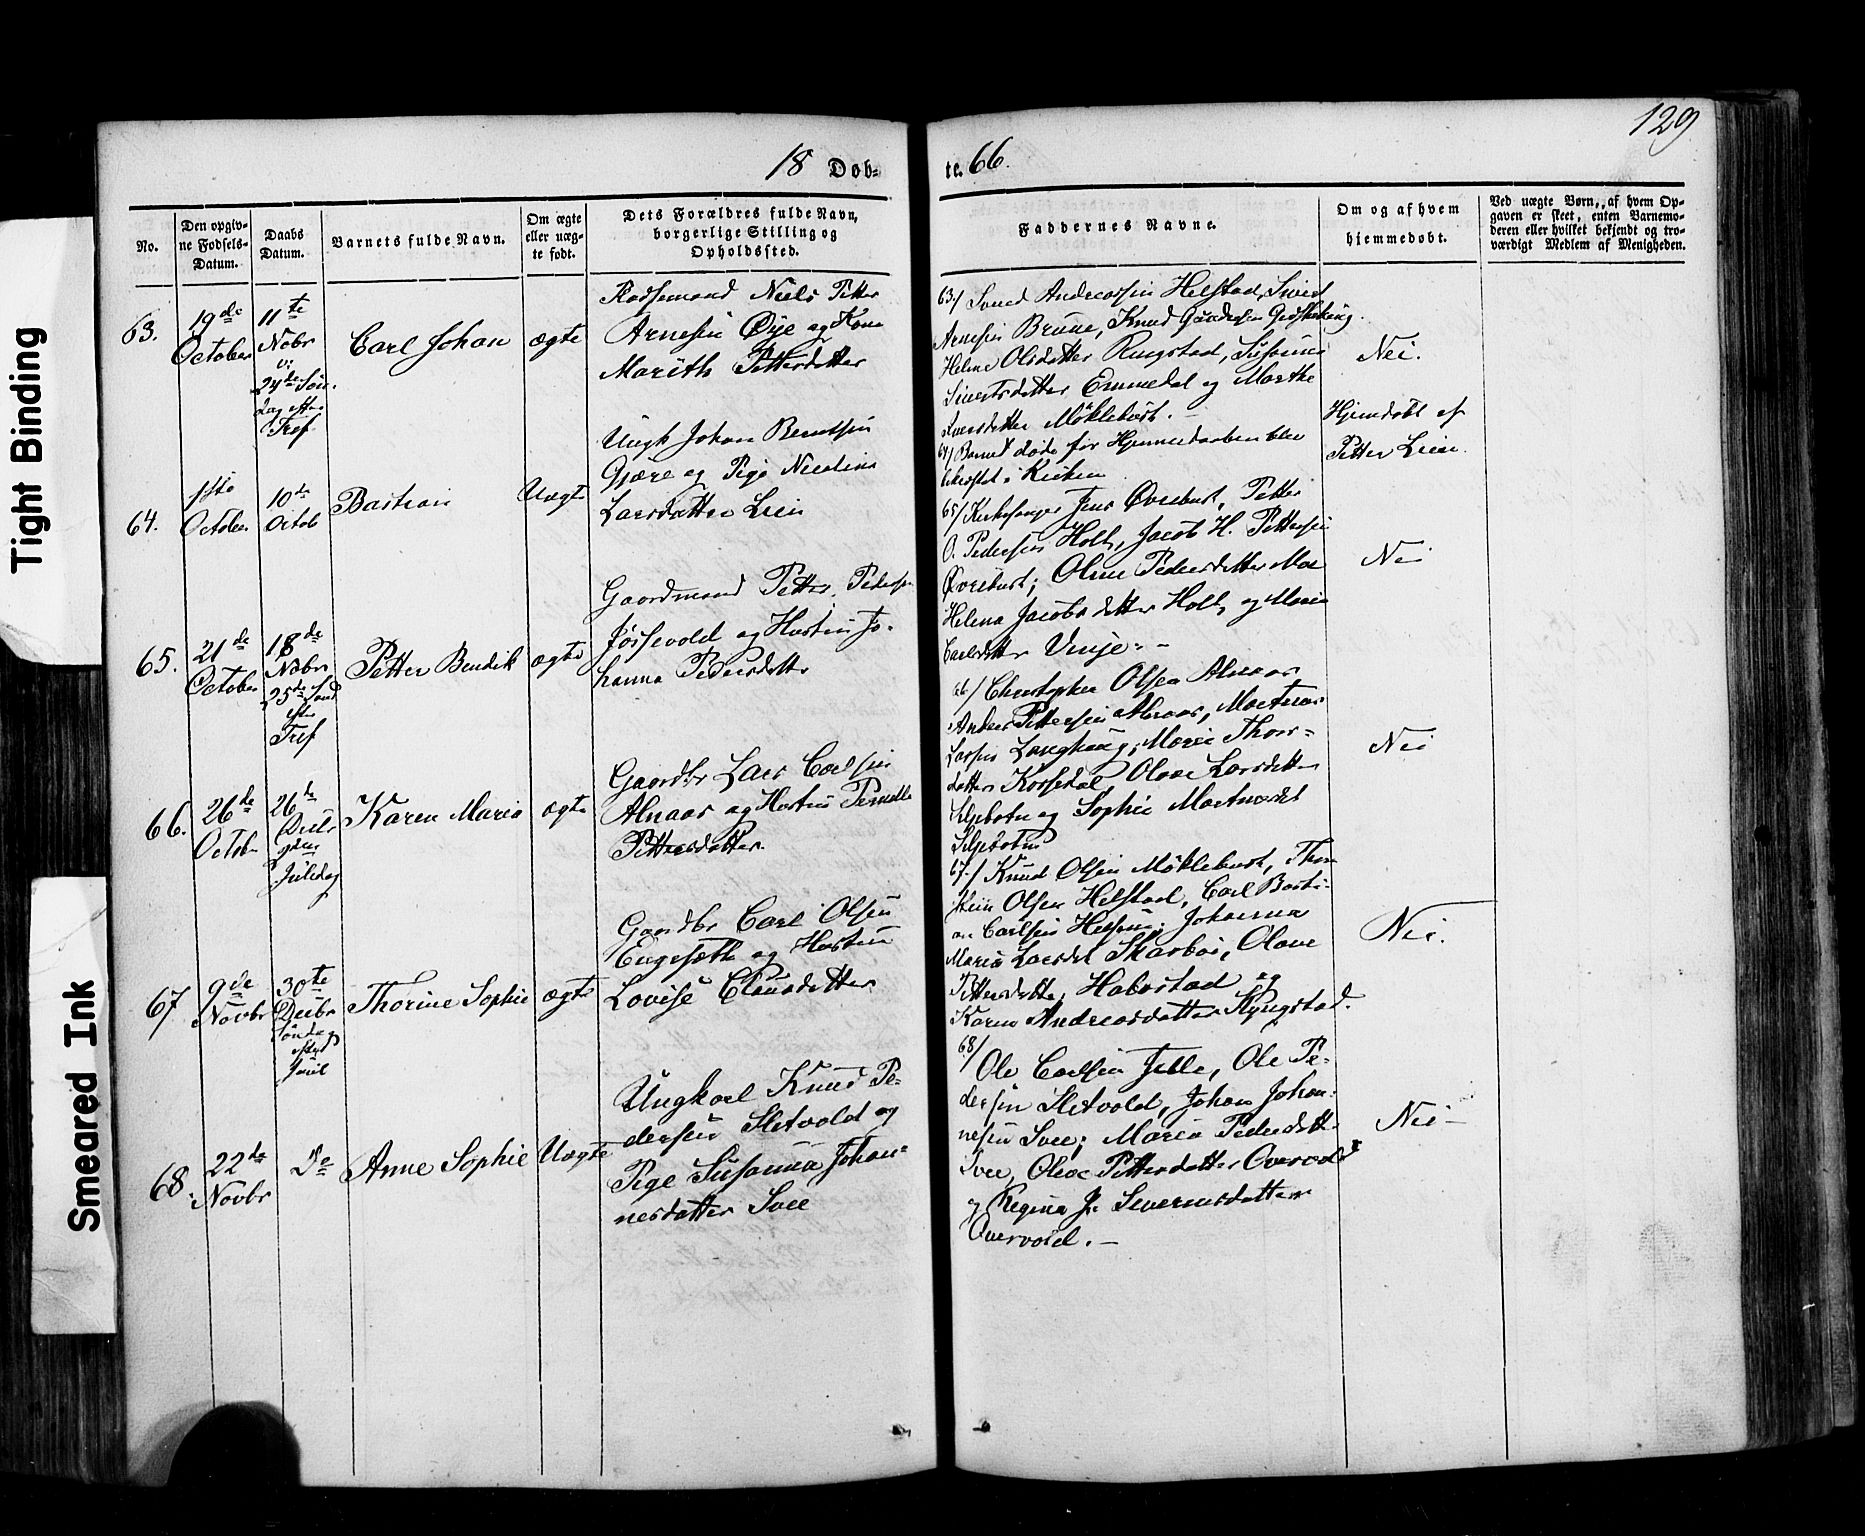 129
18 Døb-
te. 66.
No.
Den opgiv-
ne Fødsels-
Datum.
Daabs
Datum.
Barnets fulde Navn.
Om ægte
eller uæg-
te født.
Dets Forældres fulde Navn,
borgerlige Stilling og
Opholdssted.
Faddernes Navne.
Om og af hvem
hjemmedøbt.
Ved uægte Børn, af hvem Op-
gaven er skeet, enten Barnemo-
deren eller hvilket bekjendt og tro-
værdigt Medlem af Menigheden.
63.
19de
October
11te
Novbr
24de Søn-
dag efter
Tref
Carl Johan
ægte
Niels Petter
Arnesen Øye og Kone
Marith Pettersdatter
63/ Svend Andreassen Helstad, Sivert
Arnesen Brune, Knud
Helene Olsdatter Ringstad, Susanna
Sivertsdatter Emmedal og Marthe
Iversdatter Møklebust. -
Nei.
64.
1ste
October
10de
Octob
Bastian
Uægte
Ungk Johan Berntsen
Gjære og Pige Nicoline
Larsdatter Lein
64/ Barnet døde før Hjemmedaaben blev
bekræftet i Kirken
Hjemdøbt af
Petter Leine.
65.
21de
October
18de
Novbr
25de Sønd
efter
Tref
Petter Bendik
ægte
Gaardmand Petter Peders:
og Hustru Jo-
hanna Pedersdatter
65/ Kirkesanger Jens Øvrebust, Petter
O. Pedersen Holt, Jacob H. Pettersen
Øvrebust; Oline Pedersdatter Moe
Helena Jacobsdatter Holt, og Maria
Carlsdatter Vinje. -
Nei
66.
26de
Octob
26de
Decbr
2den
Juledag
Karen Maria
ægte
Gaardbr Lars Carlsen
Alnaas og Hustru Pernille
Pettersdatter.
66/ Christopher Olsen Alnaas
Anders Pettersen Alnaas, Martinus
Larsen Langhaug; Maria Thors-
datter Korsedal Olave Larsdatter
Siljebotn og Sophie Martinusdt
Siljebotn
Nei
67
9de
Novbr
30te
Decbr
Søndag
efter
Juul
Thorine Sophie
ægte
Gaardbr Carl Olsen
Engeseth og Hustru
Lovise Clausdatter
67/ Knud Olsen Møklebust, Thor-
Olsen Helstad, Carl Basti-
an Carlsen Johanna
Maria Larsdt Skarbø, Olave
Pettersdatter Habostad og
Karen Andreasdatter Ryngstad.
Nei.
68.
22de
Novbr
Do
Anne Sophie
Uægte
Ungkarl Knud Pe-
dersen Sletvold og
Pige Susanna Johan-
nesdatter Svee
68/
Ole Carlsen Ole Pe-
dersen Sletvold, Johan Johan-
nesen Svee; Maria Pedersdatt.
Svee, Olave Pettersdatter Overvold
og Regina J. Severinsdatter
Overvold. -
Nei -
Tight Binding
Smeared Ink